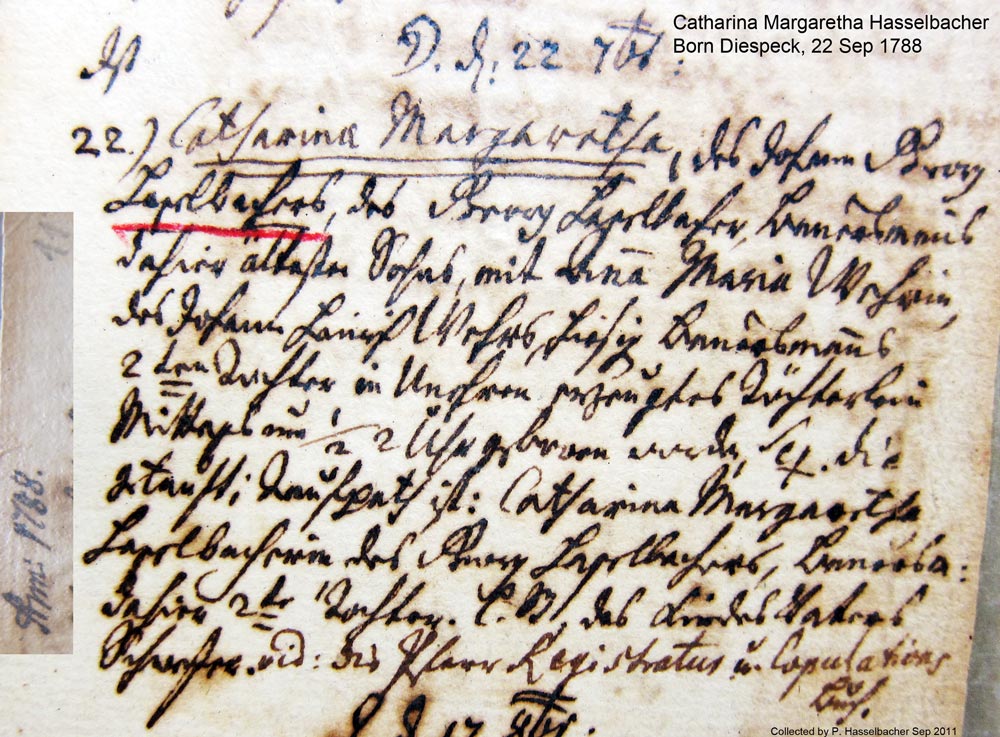 Catharina Margaretha Hasselbacher
Born Diespeck, 22 Sep 1788
D. d. 22 7br:
22.) Catharina Margaretha, des Johann Georg
Haßelbachers, des Georg Haßelbacher, Bauersmanns
dahier ältesten Sohns, mit Anna Maria Wehrin,
des Johann Heinrich Wehrs, hiesig Bauersmanns
2ten Tochter in Unehren erzeugtes Töchterlein
Mittags um 1/2 2 Uhr geboren worden, die
getauft; Taufpath ist: Catharina Margaretha
Haßelbacherin des Georg Haßelbachers, Bauersm:
dahier 2te Tochter. C. V. des Kindes Vaters
Schwester. vid: die Pfarr Registratur u. Copulations
Buch.
Anni 1788.
Collected by P. Hasselbacher Sep 2011